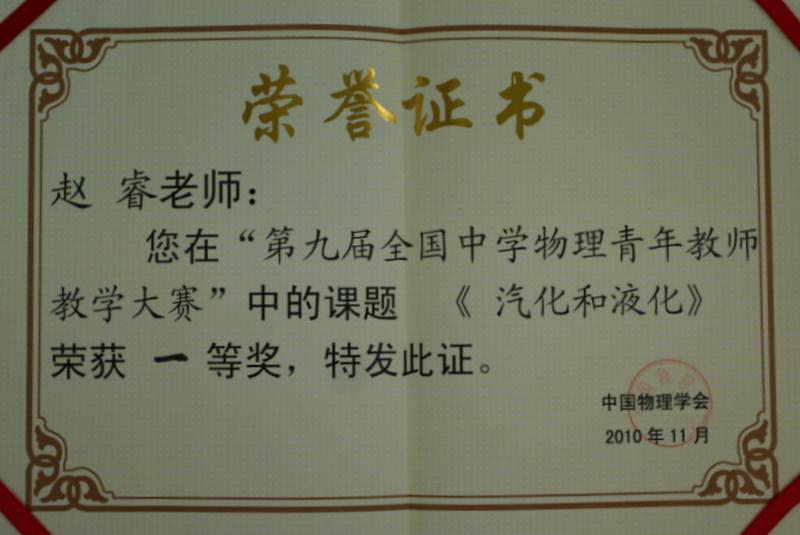 荣誉证书
赵 睿老师：
您在“第九届全国中学物理青年教师
教学大赛”中的课题 《 汽化和液化》
荣获 一 等奖，特发此证。
中国物理学会
2010年11月